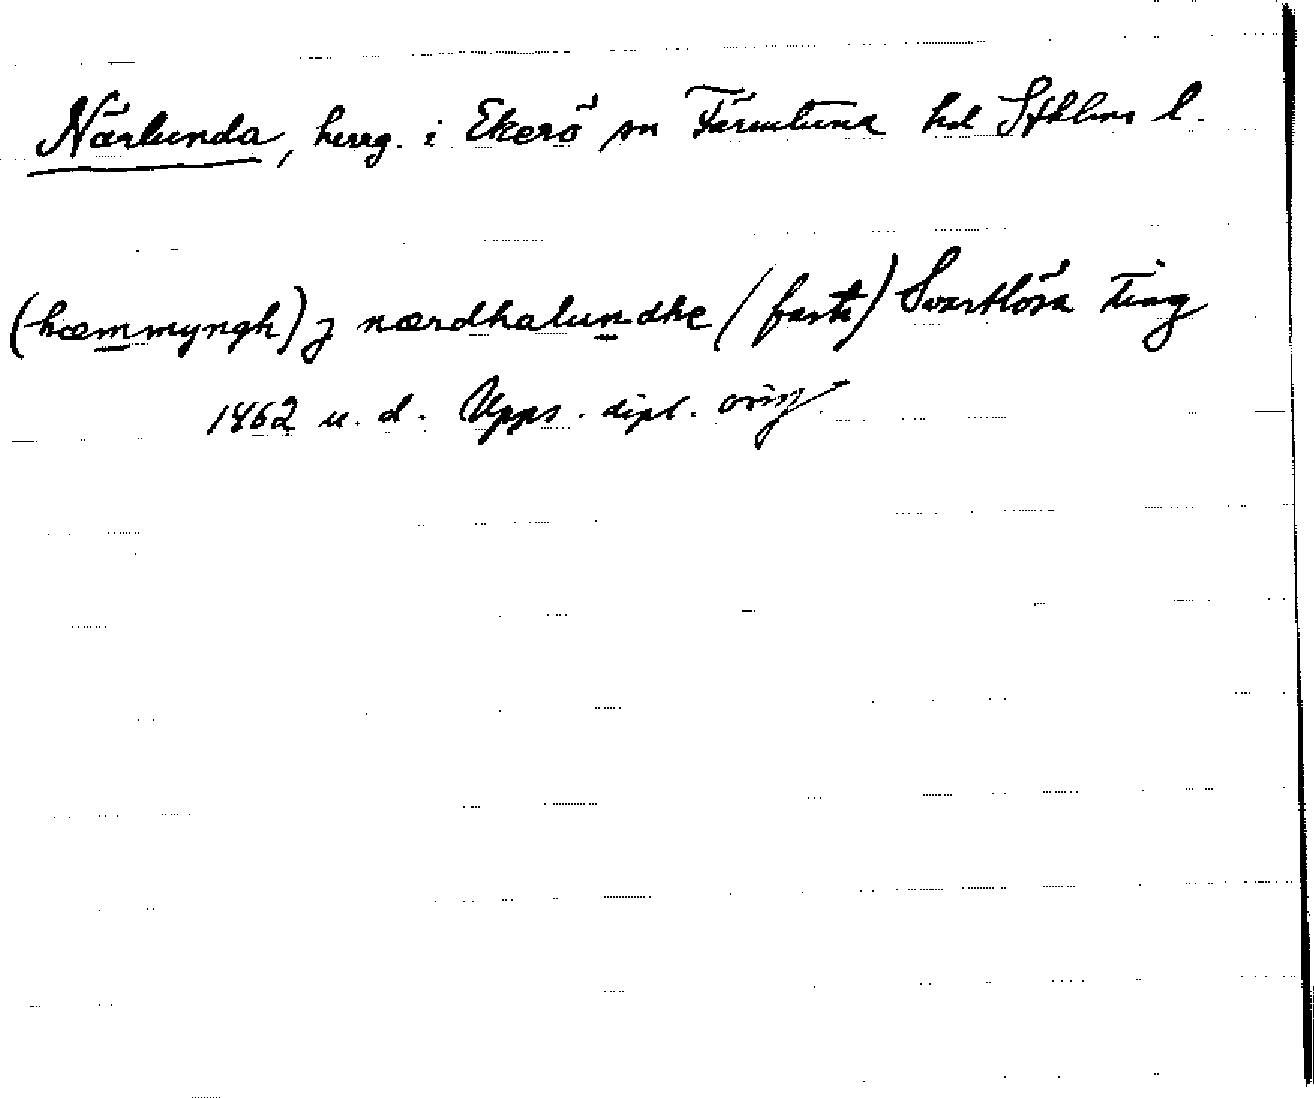 Närlunda, herrg. i Ekerö sn Färentuna hd Sthlms l.
(hæmmyngh) j nærdhalundhe (fasti) Svartlösa ting
1462 u. d. Upps. dipl. orig